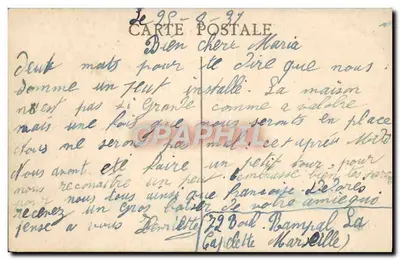 Le 25-8-31
CARTE POSTALE
Bien chère Maria
deux mots pour te dire que nous
somme un peut installé. La maison
n'est pas si grande comme a
mais une fois que nous seront en place
nous ne seront pas mal. cet après Midi
nous avont été faire un petit tour, pour
nous reconaître un peu. embrasse bien
pour nous tous ainsi que françoise
recevez un gros baiser de votre amie qui
pense a vous Henriette
72 Boul. Rampal La
Capelette Marseille)